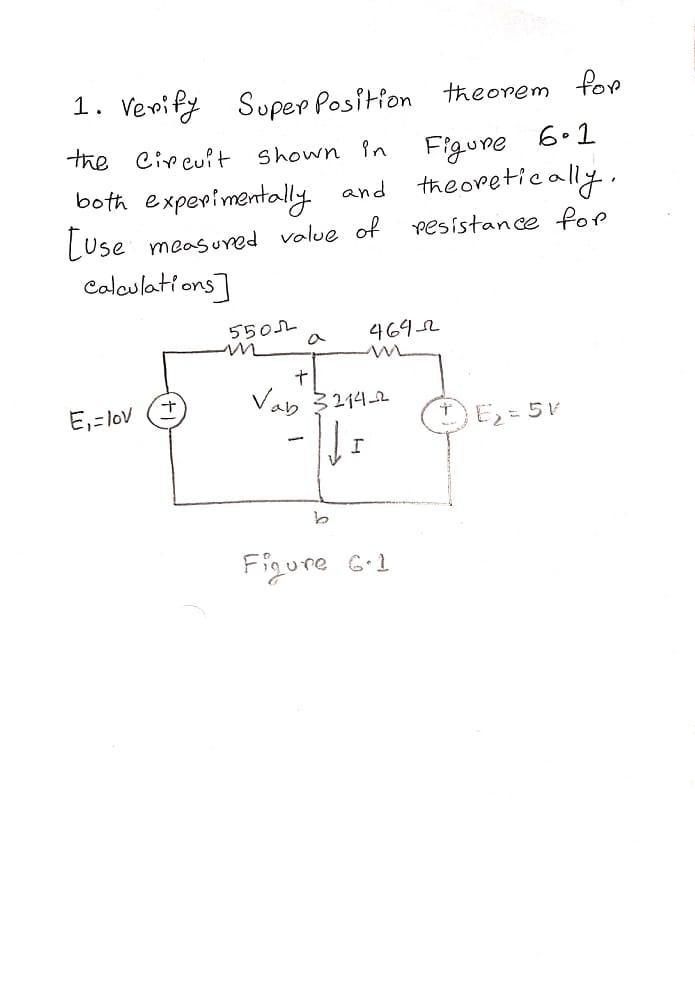 1. Verify Superposition theorem for
the Circuit shown in Figure 6.1
both experimentally and theoretically.
[Use measured value of resistance for
calculations]
550Ω a 464Ω
+
E₁=10V + Vab 214Ω + E₂=5V
- I
b
Figure 6.1